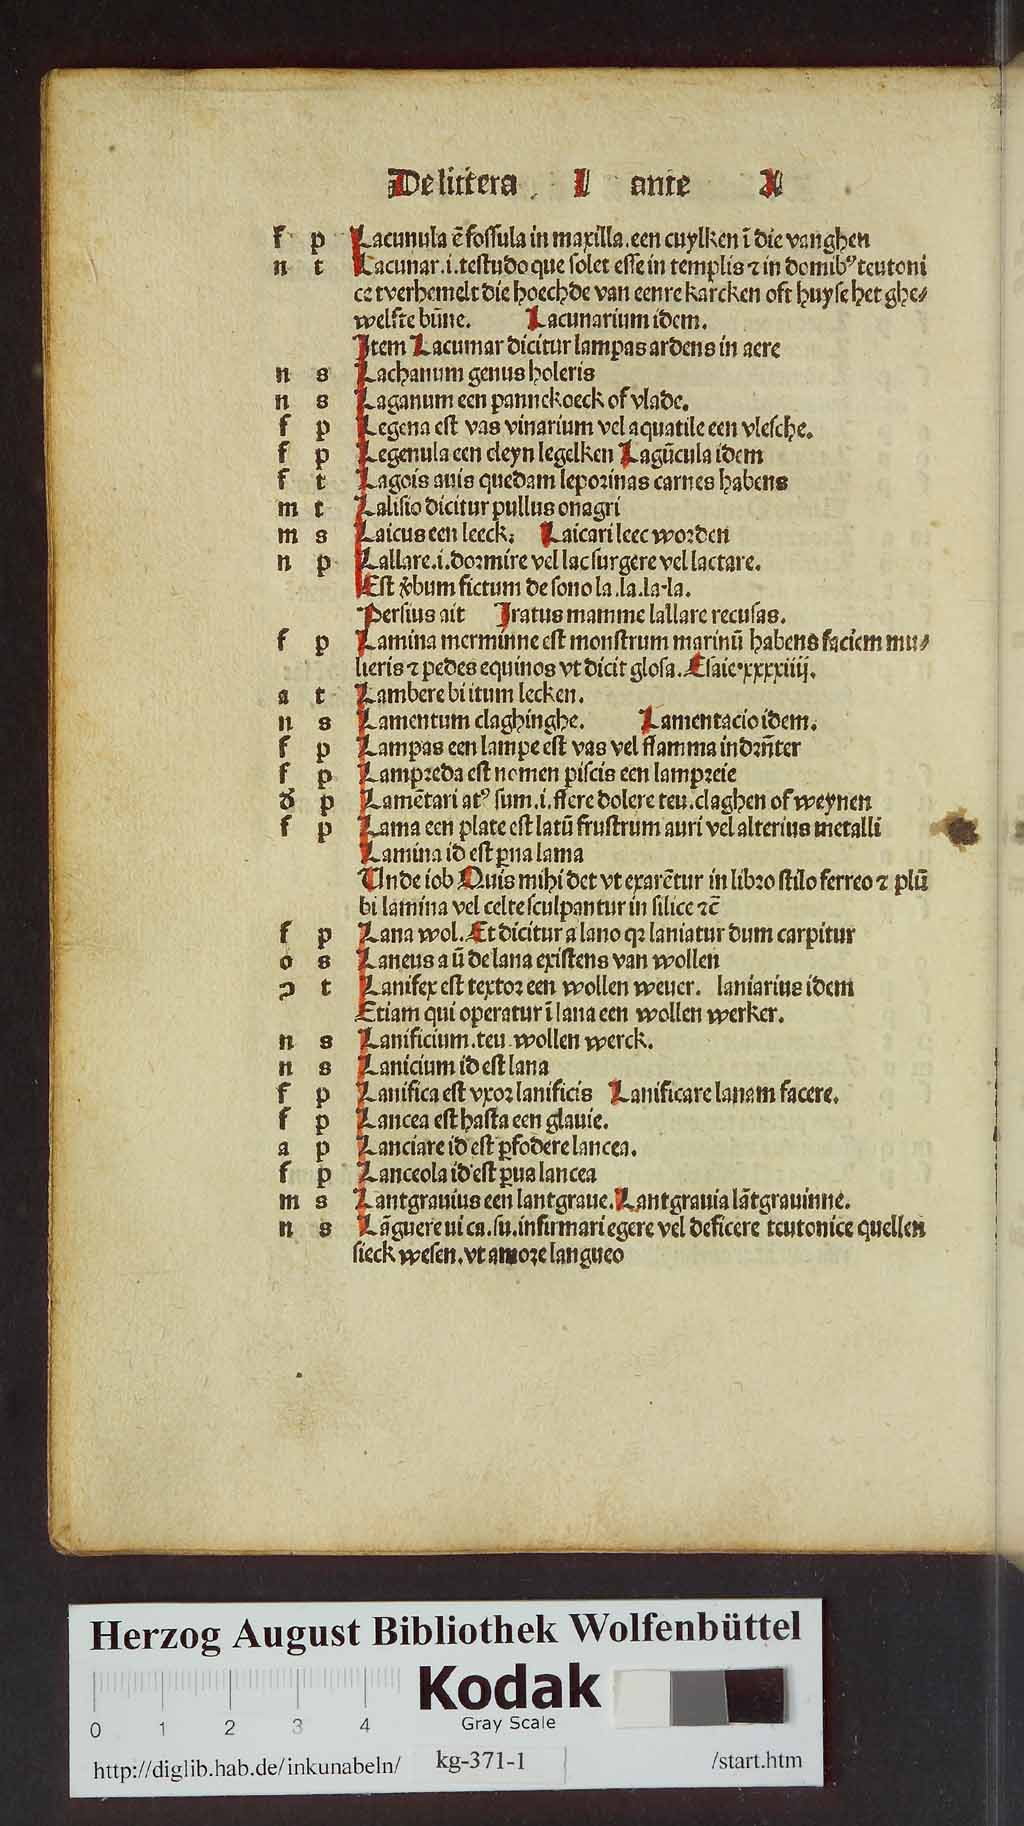 De littera L ante A
f p Lacunula ē fossula in maxilla. een cuylken ī die vanghen
n t Lacunar .i. testudo que solet esse in templis ⁊ in domibꝰ teutoni
ce tverhemelt die hoechde van eenre karcken oft huyse het ghe⸗
welfte būne. Lacunarium idem.
Item Lacumar dicitur lampas ardens in aere
n s Lachanum genus holeris
n s Laganum een pannekoeck of vlade.
f p Legena est vas vinarium vel aquatile een vlesche.
f p Legenula een cleyn legelken Lagūcula idem
f t Lagois auis quedam leporinas carnes habens
m t Lalisio dicitur pullus onagri
m s Laicus een leeck. Laicari leec worden
n p Lallare .i. dormire vel lac surgere vel lactare.
Est ꝟbum fictum de sono la .la. la-la.
Persius ait Iratus mamme lallare recusas.
f p Lamina merminne est monstrum marinū habens faciem mu⸗
lieris ⁊ pedes equinos vt dicit glosa. Esaie.xxxxiiij.
a t Lambere bi itum lecken.
n s Lamentum claghinghe. Lamentacio idem.
f p Lampas een lampe est vas vel flamma indrn̄ter
f p Lampreda est nomen piscis een lampreie
p Lamētari atꝰ sum .i. flere dolere teu. claghen of weynen
f p Lama een plate est latū frustrum auri vel alterius metalli
Lamina id est ꝑua lama
Unde iob Quis mihi det vt exarētur in libro stilo ferreo ⁊ plū
bi lamina vel celte sculpantur in silice ⁊c̄
f p Lana wol. Et dicitur a lano qꝛ laniatur dum carpitur
o s Laneus a ū de lana existens van wollen
ꜿ t Lanifex est textor een wollen weuer. laniarius idem
Etiam qui operatur ī lana een wollen werker.
n s Lanificium. teu. wollen werck.
n s Lanicium id est lana
f p Lanifica est vxor lanificis Lanificare lanam facere.
f p Lancea est hasta een glauie.
a p Lanciare id est ꝑfodere lancea.
f p Lanceola id est ꝑua lancea
m s Lantgrauius een lantgraue. Lantgrauia lātgrauinne.
n s Lāguere ui ca. su. infirmari egere vel deficere teutonice quellen
sieck wesen. vt amore langueo
Herzog August Bibliothek Wolfenbüttel
Kodak
Gray Scale
0 1 2 3 4
http://diglib.hab.de/inkunabeln/ kg-371-1 /start.htm